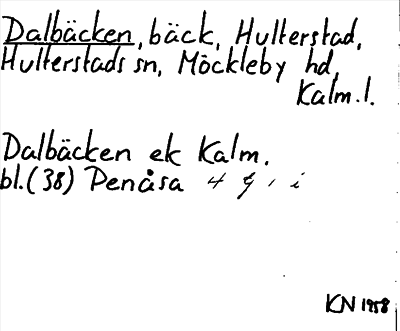 Dalbäcken, bäck, Hulterstad,
Hulterstads sn, Möckleby hd,
Kalm. l.
Dalbäcken ek Kalm.
bl. (38) Penåsa 4 g i
KN 1958